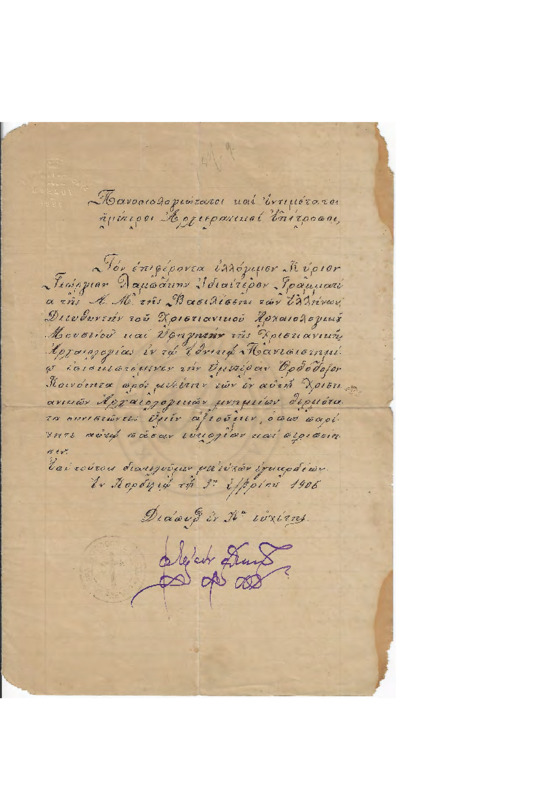 Πανοσιολογιώτατοι καὶ ἐντιμότατοι
ἡμέτεροι Ἀρχιερατικοὶ Ἐπίτροποι,
Τὸν ἐπιφέροντα ἐλλόγιμον Κύριον
Γεώργιον Λαμπάκην Ἰδιαίτερον Γραμματ
έα τῆς Α. Μ. τῆς Βασιλίσσης τῶν Ἑλλήνων,
Διευθυντὴν τοῦ Χριστιανικοῦ Ἀρχαιολογικοῦ
Μουσείου καὶ Ὑφηγητὴν τῆς Χριστιανικῆς
Ἀρχαιολογίας ἐν τῷ Ἐθνικῷ Πανεπιστημί
ῳ ἐπισκεπτόμενον τὴν Ὑμετέραν Ὀρθόδοξον
Κοινότητα πρὸς μελέτην τῶν ἐν αὐτῇ Χριστι
ανικῶν Ἀρχαιολογικῶν μνημείων θερμότα
τα συνιστῶντες Ὑμῖν ἀξιοῦμεν, ὅπως παρά
σχητε αὐτῷ πᾶσαν εὐκολίαν καὶ περιποίη
σιν.
Ἐπὶ τούτῳ διατελοῦμεν μετ' εὐχῶν ἐγκαρδίων.
Ἐν Κορδελιῷ τῇ 1906
Διάπυρος ἐν Χῷ εὐχέτης